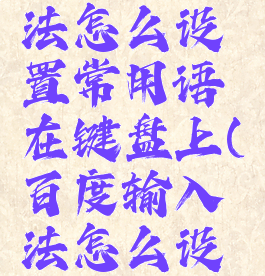 法怎么设
置常用语
在键盘上(
百度输入
法怎么设